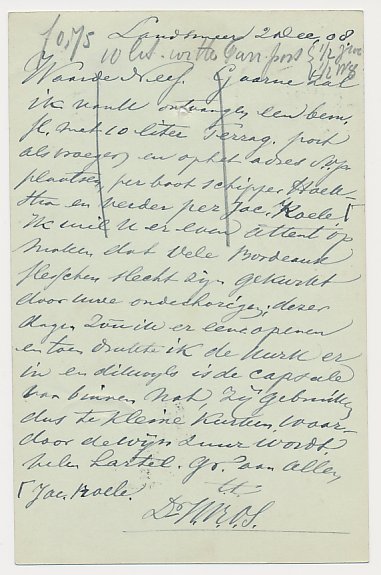 f 0,75
Landsmeer 2 Dec. 08.
10 lit. witte Tarr. port
Waarde Neef. Gaarne zal
ik van U ontvangen een bem.
fl. met 10 liter Terrag. port
als vroeger, en op het adres
plaatsen per boot schipper Hoek-
stra en verder per Jac. Koele.
Ik wil U er even attent op
maken dat vele Bordeaux
flesschen slecht zijn gekurkt
door uwe onderhoorigen; dezer
dagen zou ik er eene openen
en toen drukte ik de kurk er
in en dikwijls is de capsule
van binnen nat, zij gebruiken
dus te kleine kurken, waar-
door de wijn zuur wordt.
velen hartel. gr. aan allen
Jac. Koele. tt.